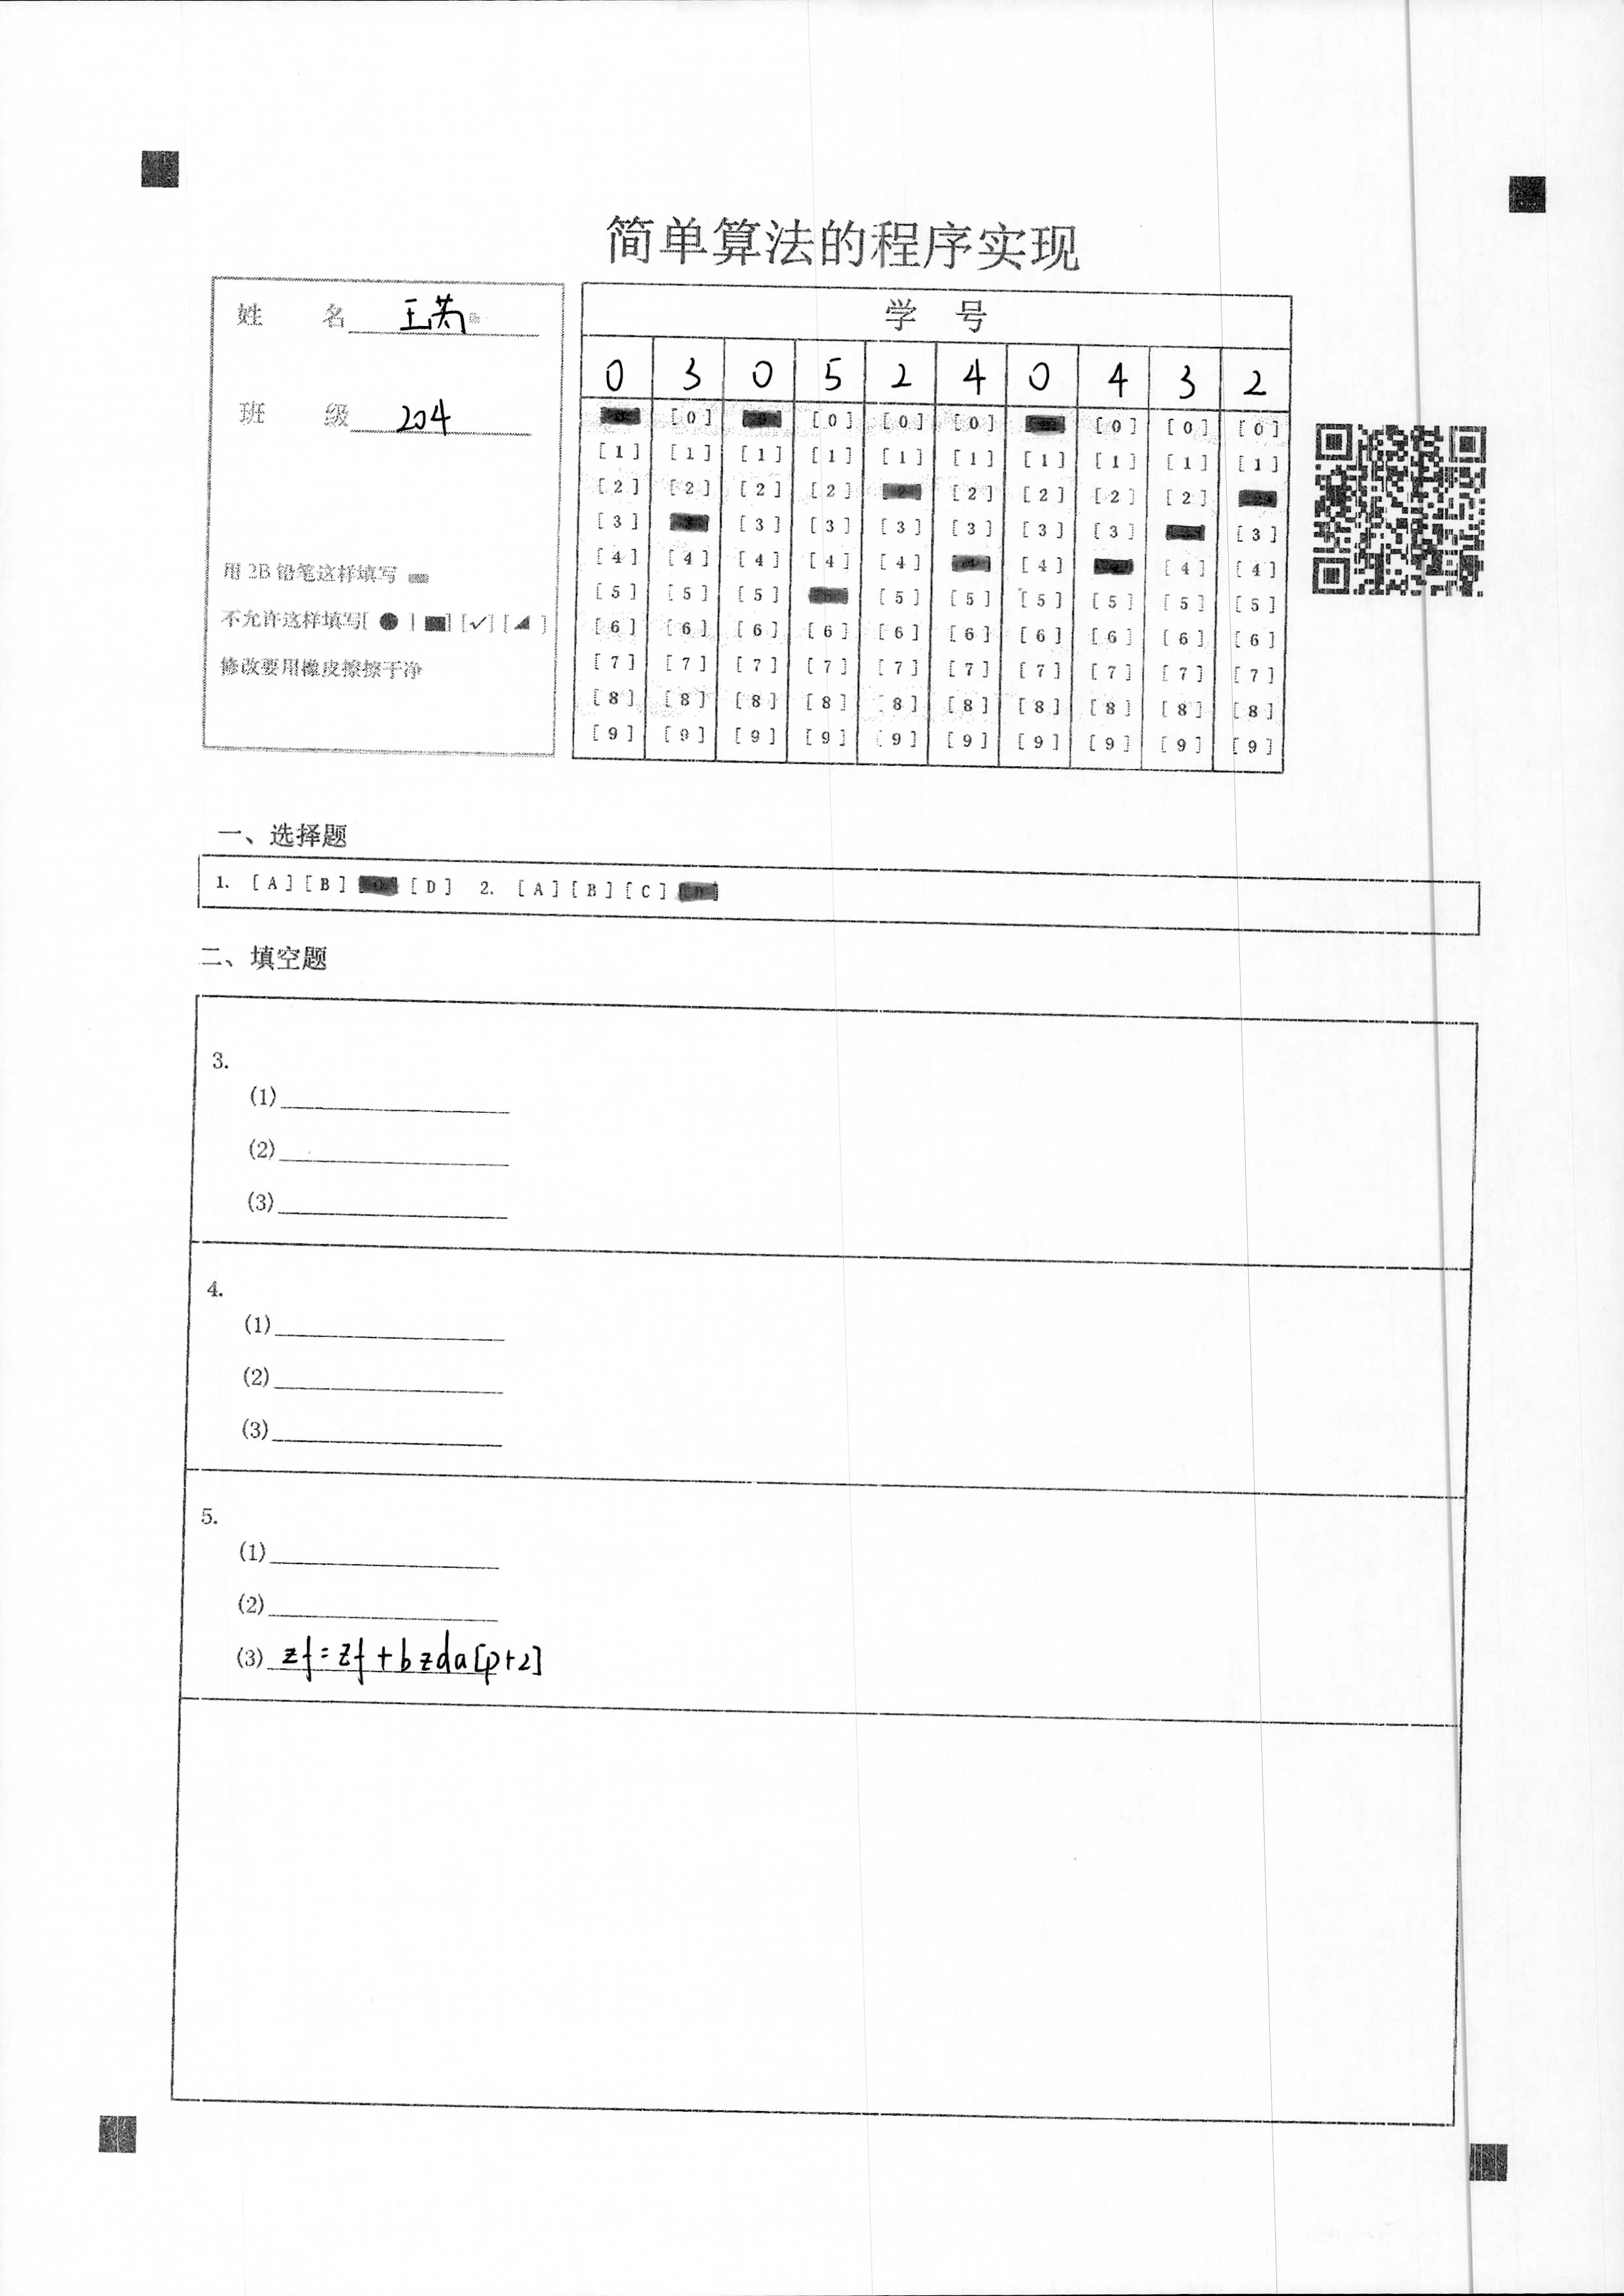 简单算法的程序实现
姓 名
班 级 204
用 2B 铅笔这样填写
不允许这样填写[ ● ] [■] [✓] [◢ ]
修改要用橡皮擦擦干净
学 号
0 3 0 5 2 4 0 4 3 2
[0] [0] [0] [0] [0] [0] [0]
[1] [1] [1] [1] [1] [1] [1] [1] [1] [1]
[2] [2] [2] [2] [2] [2] [2] [2]
[3] [3] [3] [3] [3] [3] [3] [3]
[4] [4] [4] [4] [4] [4] [4] [4]
[5] [5] [5] [5] [5] [5] [5] [5] [5]
[6] [6] [6] [6] [6] [6] [6] [6] [6] [6]
[7] [7] [7] [7] [7] [7] [7] [7] [7] [7]
[8] [8] [8] [8] [8] [8] [8] [8] [8] [8]
[9] [9] [9] [9] [9] [9] [9] [9] [9] [9]
一、选择题
1. [A] [B] [D] 2. [A] [B] [C] [D]
二、填空题
3.
(1)
(2)
(3)
4.
(1)
(2)
(3)
5.
(1)
(2)
(3) zf=zf+bzda[p+2]